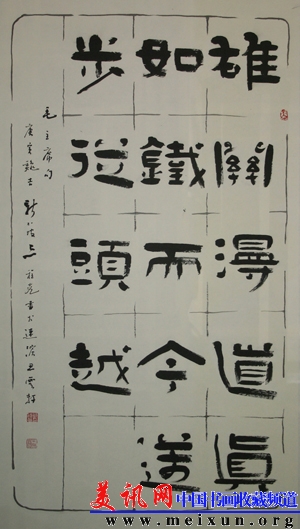 雄關漫道真
如鐵而今邁
步從頭越
毛主席句
美讯网 中国书画收藏频道
www.meixun.org